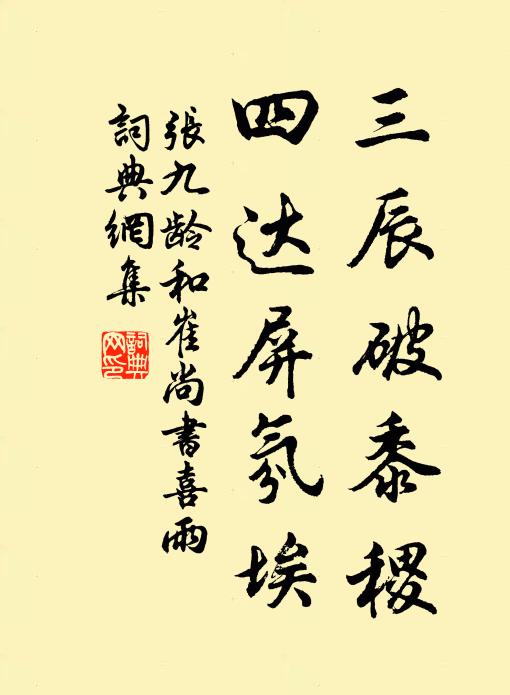 三辰破黍稷
四达屏氛埃
张九龄和崔尚书喜雨
詞典網集
詞典
网印